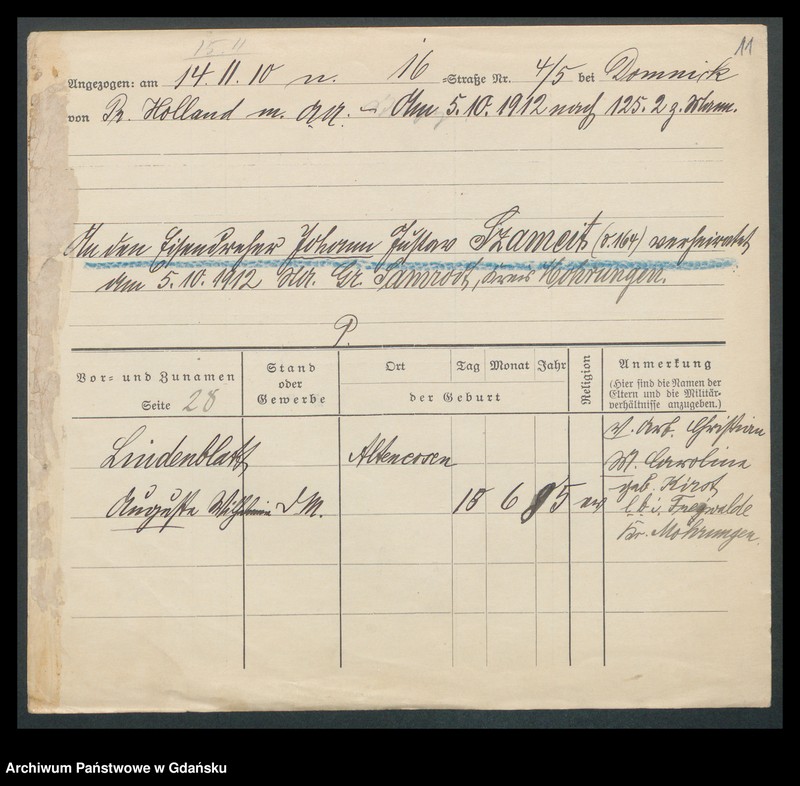 11
15.11
Angezogen: am 14.11.10 n. 16 =Straße Nr. 4/5 bei Domnick
von Pr. Holland m. — Am 5.10.1912 nach 125.2 z. Mann.
An den Eisendreher Johann Gustav Szameit (v. 164) verheiratet
am 5.10.1912 Gr. Kreis Mohrungen.
P.
Vor= und Zunamen
Seite 28
Stand
oder
Gewerbe
Ort Tag Monat Jahr
der Geburt
Religion
Anmerkung
(Hier sind die Namen der
Eltern und die Militär-
verhältnisse anzugeben.)
Lindenblatt
Auguste Wilhelmine D M.
6
V. Arb. Christian
M. Caroline
geb.
Kr. Mohrungen.
Archiwum Państwowe w Gdańsku